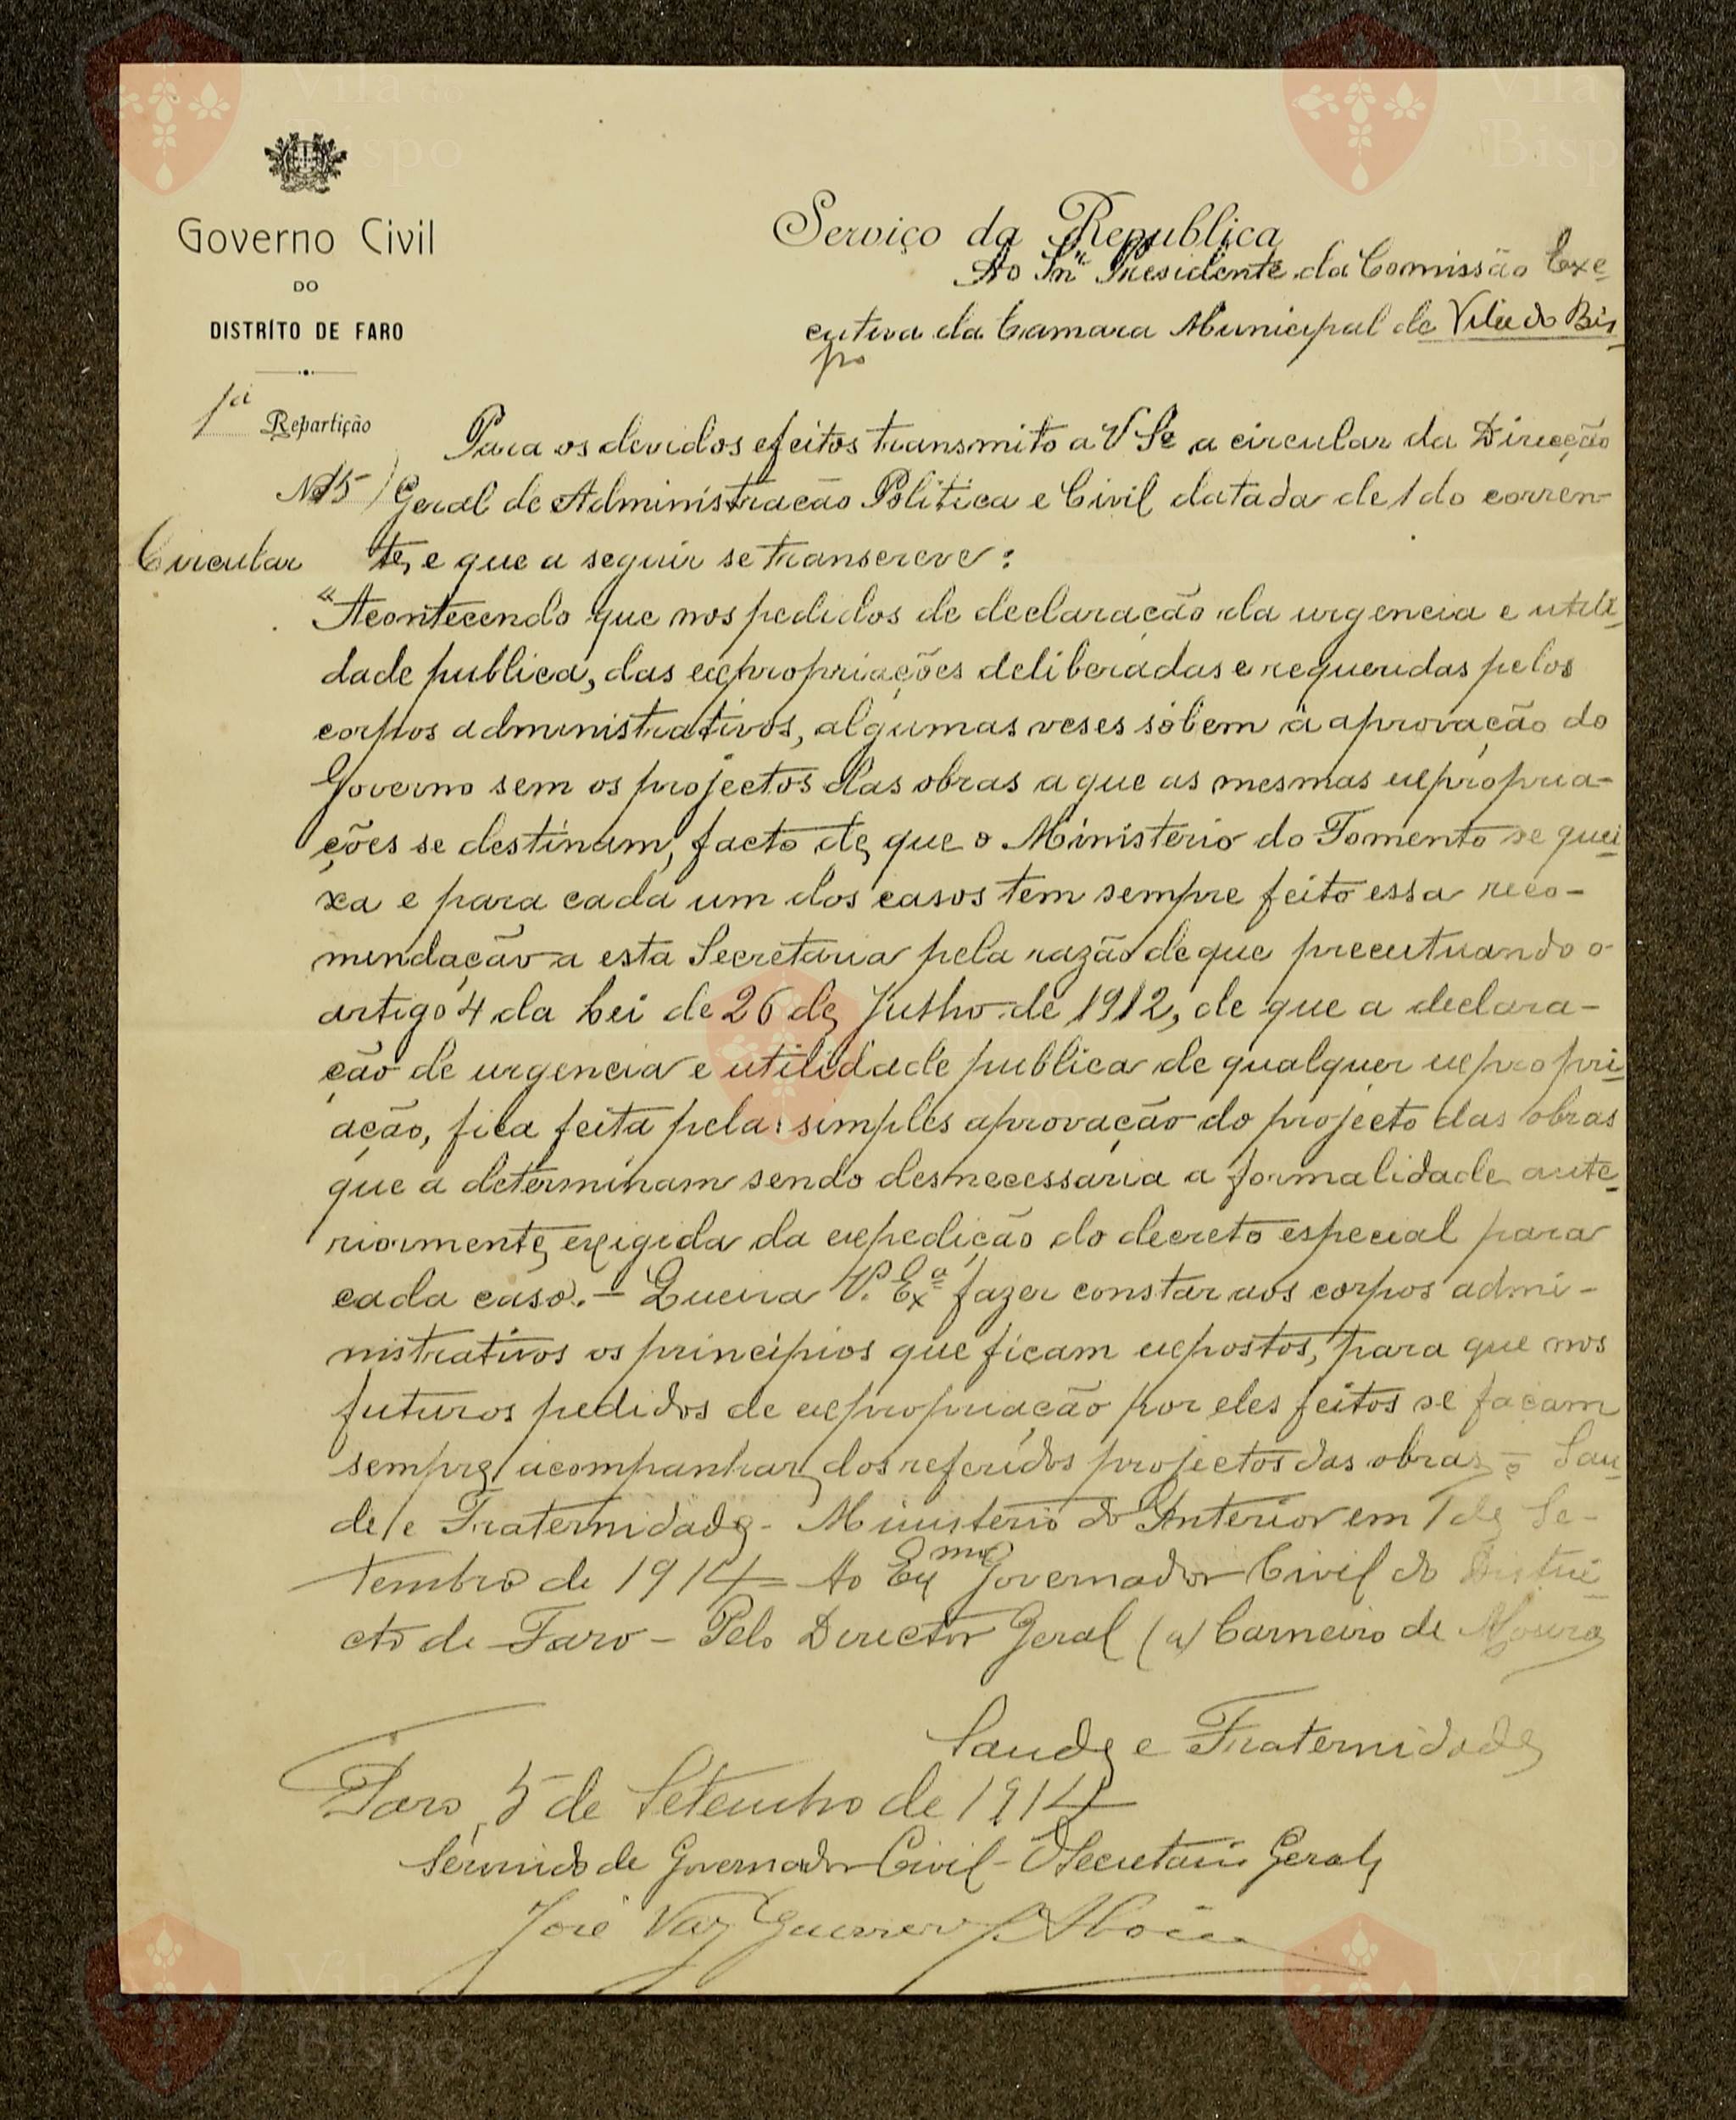 Governo Civil
DO
DISTRÍTO DE FARO
Serviço da Republica
Ao Snr Presidente da Comissão Exe-
cutiva da Camara Municipal de Vila do Bis-
po
1ª Repartição
Nº 15
Circular
Para os devidos efeitos transmito a V Sª a circular da Direcção
Geral de Administração Politica e Civil datada de 1 do corren-
te, e que a seguir se transcreve:
"Acontecendo que nos pedidos de declaração da urgencia e utili-
dade publica, das expropriações deliberadas e requeridas pelos
corpos administrativos, algumas veses sóbem à aprovação do
Governo sem os projectos das obras a que as mesmas expropria-
ções se destinam, facto de que o Ministerio do Fomento se quei-
xa e para cada um dos casos tem sempre feito essa reco-
mendação a esta Secretaria pela razão de que preceituando o
artigo 4 da Lei de 26 de Julho de 1912, de que a declara-
ção de urgencia e utilidade publica de qualquer expropri-
ação, fica feita pela simples aprovação do projecto das obras
que a determinam sendo desnecessaria a formalidade ante-
riormente exigida da expedição do decreto especial para
cada caso. - Queira V. Exª fazer constar aos corpos admi-
nistrativos os principios que ficam expostos, para que nos
futuros pedidos de expropriação por eles feitos se façam
sempre acompanhar dos referidos projectos das obras = Sau-
de e Fraternidade - Ministerio do Interior em 1 de Se-
tembro de 1914 = Ao Exmo Governador Civil do Distri-
cto de Faro - Pelo Director Geral (a) Carneiro de Moura
Saude e Fraternidade
Faro, 5 de Setembro de 1914
Servindo de Governador Civil - O Secretario Geral,
José Vaz Guerreiro
Vila do
Bispo